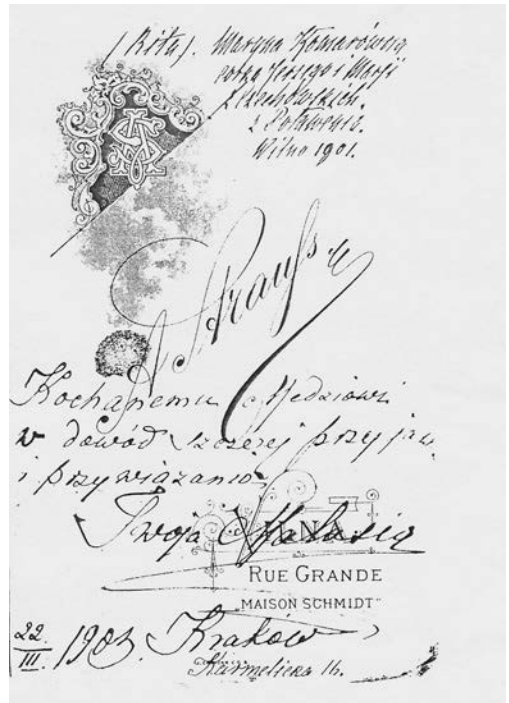 (Rita). Maryna Komarówna
córka Jerzego i Marji
z Czechowskich.
Wilno 1901.
A. Strauss
Kochanemu
w dowód szczerej przyjaźni
i przywiązania
Twoja
RUE GRANDE
„MAISON SCHMIDT"
22.
III. 1903. Kraków
Karmelicka 16.